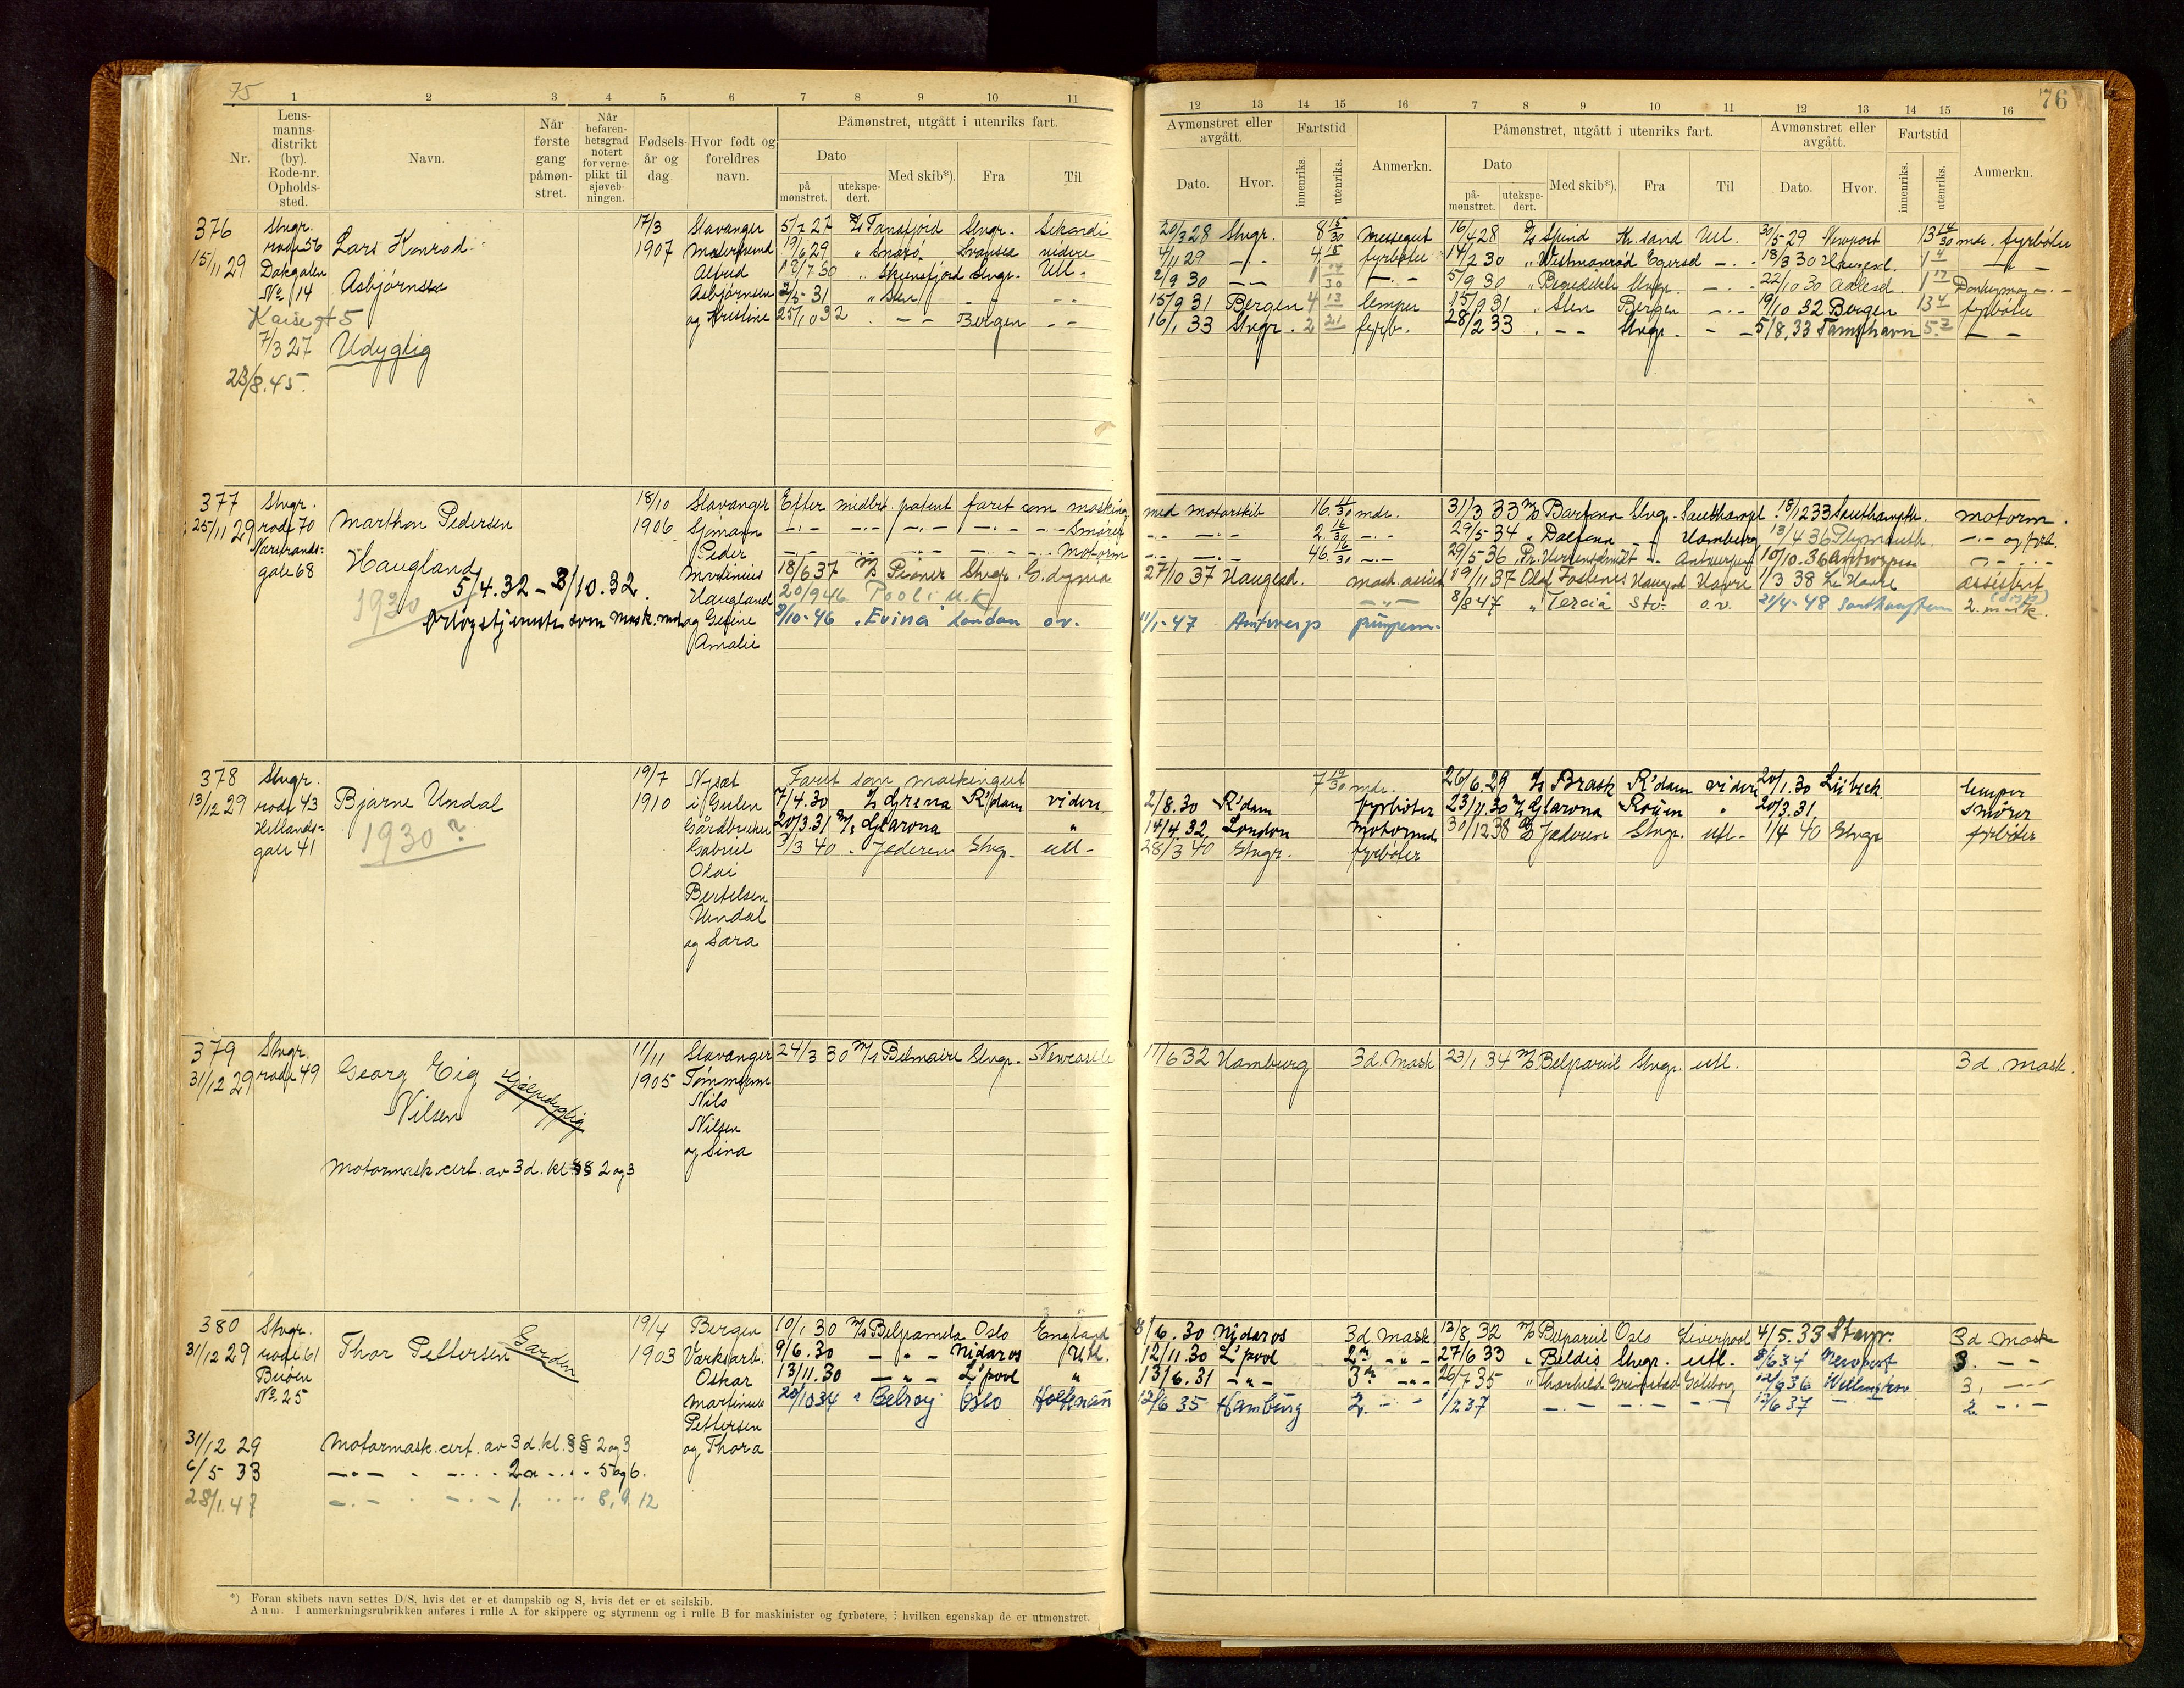 75
1 2 3 4 5 6 7 8 9 10 11
Nr.
Lens-
manns-
distrikt
(by).
Rode-nr.
Opholds-
sted.
Navn.
Når
første
gang
påmøn-
stret.
Når
befaren-
hetsgrad
notert
for verne-
plikt til
sjøveb-
ningen.
Fødsels-
år og
dag.
Hvor født og
foreldres
navn.
Påmønstret, utgått i utenriks fart.
Dato
på
mønstret.
utekspe-
dert.
Med skib*).
Fra
Til
376 Stvgr.
15/11 29 rode 56
Dokgaten
No. 14
Kaise A 5
7/3 27
23/8.45.
Lars Konrad
Asbjørnsen
Udygtig
17/3
1907
Stavanger
Alfred
Asbjørnsen
og Kristine
5/7 27 Tansfjord Stvgr. Sekondi
19/6 29 " Snarø Svansea videre
" Skiensfjord Stvgr. Utl.
2/5 31 " Sten — — —
25/10 32 . — — Bergen — —
377 Stvgr.
25/11 29 rode 70
Narstrands=
gate 68
Marthon Pedersen
Haugland
5/4.32 – 3/10.32.
1930
18/10
1906
Stavanger
Sjømann
Peder
Martinius
Haugland
og Gesine
Amalie
Efter midlrt. patent faret som masking.
— . — — . — — . — — . — Smører
— . — — . — — . — — . — Motorm
18/6 37 M/S Pioner Stvgr. Gdynia
20/9 46 Pool i U.K
8/10-46 . Evina London o.v.
378 Stvgr.
13/12 29 rode 43
Hetlands=
gate 41
Bjarne Undal
1930?
19/7
1910
i Gulen
Gårdbruker
Gabriel
Olai
Bertelsen
Undal
og Sara
Faret som maskingut
7/4.30 Grena R'dam videre
20/3.31 M/S Glarona "
3/3 40 . Jæderen Stvgr. utl-
379 Stvgr.
31/12 29 rode 49
Georg Eig
Nilsen
Hjelpedygtig
Motormask. cert. av 3d. kl. §§ 2 og 3
11/11
1905
Stavanger
Tømmerm
Nils
Nilsen
og Sina
24/3 30 M/S Belmaire Stvgr. Newcastle
380 Stvgr.
31/12 29 rode 61
Buøen
No. 25
Thor Pettersen
Garden
19/4
1903
Bergen
Værksarb.
Oskar
Martinius
Pettersen
og Thora
10/1 30 M/S Belpamela Oslo England
9/6.30 — " — Nidaros Utl.
13/11.30 — " — L'pool "
20/10 34 " Belray Oslo Holtenau
31/12 29 Motormask. cert. av 3d. kl. §§ 2 og 3
6/5 33 — . — . — . . . 2n . . . . 5 og 6.
28/1.47 — . — . — . . — 1. . . . . 8, 9. 12
*) Foran skibets navn settes D/S, hvis det er et dampskib og S, hvis det er et seilskib.
Anm. I anmerkningsrubrikken anføres i rulle A for skippere og styrmenn og i rulle B for maskinister og fyrbøtere, i hvilken egenskap de er utmønstret.
76
12 13 14 15 16 7 8 9 10 11 12 13 14 15 16
Avmønstret eller
avgått.
Dato.
Hvor.
Fartstid
innenriks.
utenriks.
Anmerkn.
Påmønstret, utgått i utenriks fart.
Dato
på-
mønstret.
utekspe-
dert.
Med skib*).
Fra
Til
Avmønstret eller
avgått.
Dato.
Hvor.
Fartstid
innenriks.
utenriks.
Anmerkn.
20/3 28 Stvgr. 8 15/30 Messegut 16/4 28 Spind Kr.sand Utl. 30/5 29 Newport 13 14/30 mdr. fyrbøter
4/11 29 — . — 4 15 fyrbøter 14/2 30 " Egersd — . — 18/3 30 1
2/9 30 — — 1 — . — 5/9 30 " Benedikte Stvgr. — . — 22/10 30 1 17 Donkeyman — . —
15/9 31 Bergen 4 13 lemper 15/9 31 . Sten Bergen — . — 19/10 32 Bergen 13 4 fyrbøter
16/1 33 Stvgr. 2 21 fyrb. 28/2 33 . — — Stvgr. — — 5/8.33 Tamshavn 5 — —
med motorskib 16 11/30 mdr. 31/3 33 M/S Stvgr. Southampt. 18/12 33 Southampth. motorm.
— . — — . — 2 16/30 — . — 29/5 34 . — . — Hamburg 13/4 36 Plymouth. — . — og fyrb.
— . — — . — 46 16/30 — . — 29/5 36 — . — Antwerpen 10/10.36 Antwerpen — . —
27/10 37 Haugesd. mask. assist 19/11 37 Olaf Fostenes Haugesd Havre 1/3 38 Le Havre assistent
— " — 8/8 47 " Tercia Sto- o.v. 21/4-48 Southampton 2. mask.
11/1-47 Antwerp pumpem.
7 19/30 mdr. 26/6.29 Brask R'dam videre 20/1.30 Lübeck lemper
2/8.30 R'dam fyrbøter 23/11.30 Glarona Rouen " 20/3.31 smører
14/4.32 London Motormd. 30/12 38 Jæderen Stvgr. utl- 1/4 40 Stvgr fyrbøter
28/3 40 Stvgr. fyrbøter
17/6 32 Hamburg 3d. Mask 23/1 34 M/S Belpareil Stvgr. utl. 3d. mask.
8/6.30 Nidaros 3d. Mask 13/8.32 M/S Belpareil Oslo Liverpool 4/5.33 Stavgr. 3d. mask
12/11.30 L'pool 2n — " — 27/6 33 " Beldis Stvgr. utl. 8/6 34 Newport 3. — —
13/6.31 — " — 3n — " — 26/7 35 " Thorhild Grimstad Gøteborg 12/9 36 3. — —
12/6 35 Hamburg 2. — " — 1/2 37 — . — — . — — . — 12/6 37 — . — 2. — . —